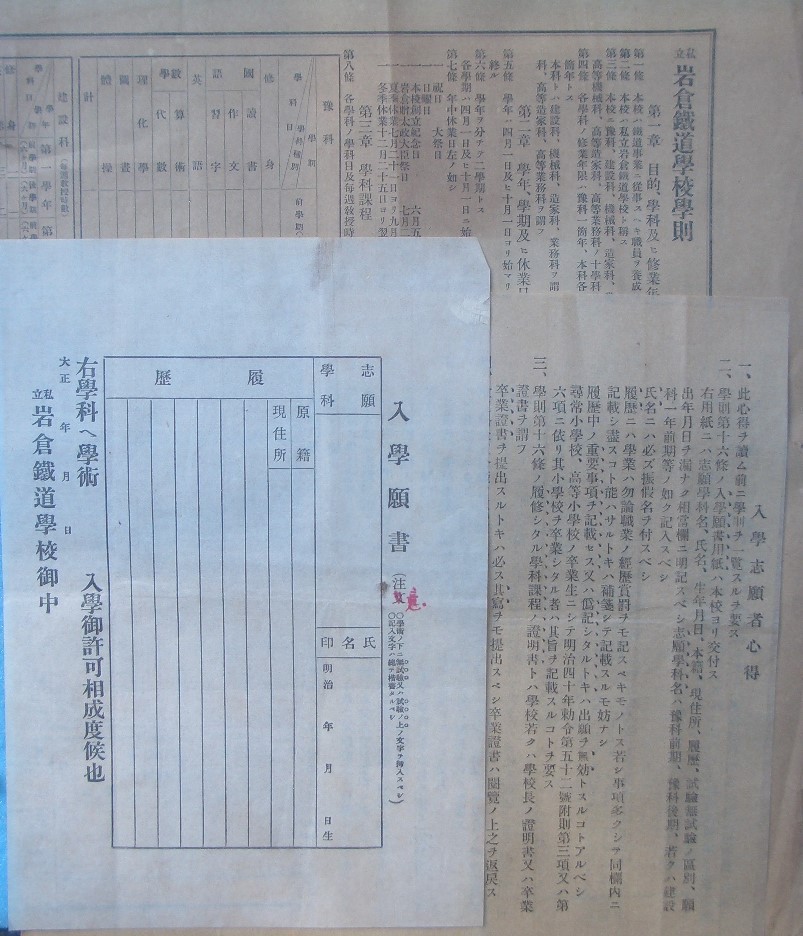 私立岩倉鐵道學校學則
第一章 目的、學科及ヒ修業年
第一條 本校ハ鐵道事業ニ從事スヘキ職員ヲ養成
第二條 本校ハ私立岩倉鐵道學校ト稱ス
第三條 本校ニ豫科、建設科、機械科、造家科、
高等機械科、高等造家科、高等業務科ノ十學科
第四條 各學科ノ修業年限ハ豫科一箇年、本科各
箇年トス
本科トハ建設科、機械科、造家科、業務科ヲ謂
科、高等造家科、高等業務科ヲ謂フ
第二章 學年、學期及ヒ休業日
第五條 學年ハ四月一日及ヒ十月一日ヨリ始マリ
終ル
第六條 學年ヲ分チテ二學期トス
各學期ハ四月一日及ヒ十月一日ニ始
第七條 年中休業日左ノ如シ
一 祝日 大祭日
一 日曜日
一 本校創立紀念日 六月五
一 岩倉贈太政大臣祭日 七月二
一 夏季休業七月二十一日ヨリ九月
一 冬季休業十二月二十五日ヨリ翌
第三章 學科課程
第八條 各學科ノ學科目及每週敎授時
豫科
學期
學科目
前學期
修身
國語 讀書
作文
習字
英語
數學 算術
代數
理化學
圖畫
體操
計
建設科
第一學年
入學志願者心得
一、此心得ヲ讀ム前ニ學則ヲ一覽スルヲ要ス
二、學則第十六條ノ入學願書用紙ハ本校ヨリ交付ス
右用紙ニハ志願學科名、氏名、生年月日、本籍、現住所、履歷、試驗無試驗ノ區別、願
出年月日ヲ漏ナク相當欄ニ明記スベシ志願學科名ハ豫科前期、豫科後期、若クハ建設
科一年前期等ノ如ク記入スベシ
氏名ニハ必ズ振假名ヲ付スベシ
履歷ニハ學業ハ勿論職業ノ經歷賞罰ヲモ記スベキモノトス若シ事項多クシテ同欄內ニ
記載シ盡スコト能ハサルトキハ補箋シテ記載スルモ妨ナシ
履歷中ノ重要事項ヲ記載セス又ハ僞記シタルトキハ出願ヲ無効トスルコトアルベシ
尋常小學校、高等小學校ノ卒業生ニシテ明治四十年勅令第五十二號附則第三項又ハ第
六項ニ依リ其小學校ヲ卒業シタル者ハ其旨ヲ記載スルコトヲ要ス
三、學則第十六條ノ履修シタル學科課程ノ證明書トハ學校若クハ學校長ノ證明書又ハ卒業
證書ヲ謂フ
卒業證書ヲ提出スルトキハ必ス其寫ヲモ提出スベシ卒業證書ハ閲覽ノ上之ヲ返戾ス
入學願書
(注意 ○學術ノ下ニ無試驗又ハ試驗ノ上ノ文字ヲ揷入スベシ
○記入文字ハ總テ楷書タルベシ)
志願學科
氏名印
明治 年 月 日生
原籍
現住所
履歷
右學科ヘ學術 入學御許可相成度候也
大正 年 月 日
私立岩倉鐵道學校御中